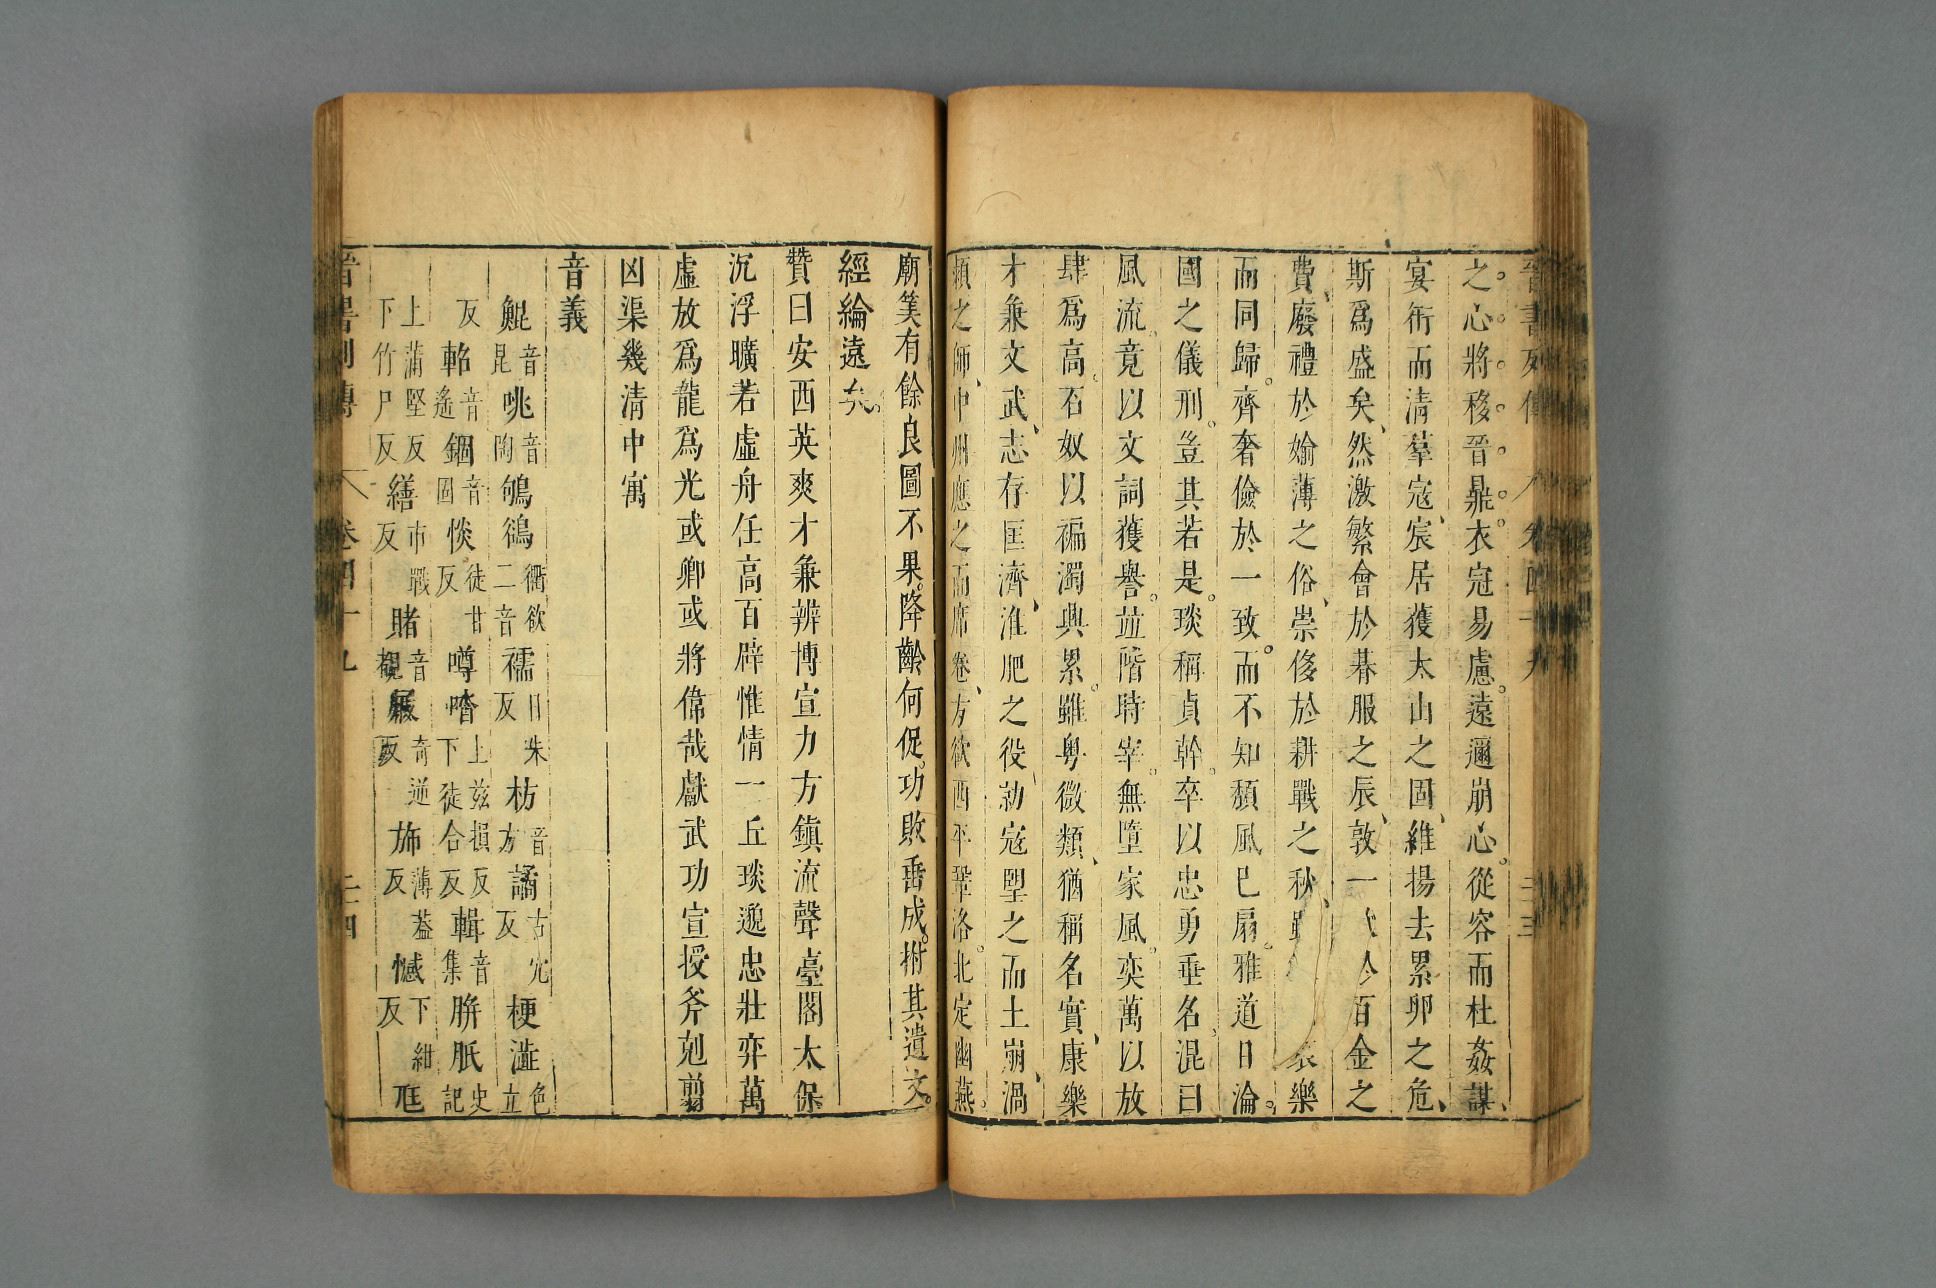 晉書列傳 卷四十九 二十三
之心。將移晉鼎。衣冠易慮。遠邇崩心。從容而杜姦謀、
宴衎而清羣寇、宸居獲太山之固、維揚去累卵之危、
斯爲盛矣、然激繁會於朞服之辰、敦一 於百金之
費、廢禮於媮薄之俗、崇侈於耕戰之秋、 樂
而同歸。齊奢儉於一致。而不知頹風已扇。雅道日淪。
國之儀刑。豈其若是。琰稱貞幹。卒以忠勇垂名。混曰
風流。竟以文詞獲譽。並階時宰。無墮家風。奕萬以放
肆爲高。石奴以褊濁興累。雖粤微類、猶稱名實、康樂
才兼文武、志存匡濟、淮肥之役、勍寇望之而土崩、渦
潁之師、中州應之而席卷、方欲西平鞏洛。北定幽燕。
廟筭有餘良圖不果。降齡何促。功敗垂成。拊其遺文。
經綸遠矣。
贊曰安西英爽才兼辨博宣力方鎭流聲臺閣太保
沉浮曠若虛舟任高百辟惟情一丘琰邈忠壯弈萬
虛放爲龍爲光或卿或將偉哉獻武功宣授斧剋翦
凶渠幾清中寓
音義
鯤音昆咷音陶鴝鵒衢欲二音襦日朱反枋音方譎古穴反梗澁色立
反軺音遙錮音固惔徒甘反噂𠴲上兹損反下徒合反輯音集腁胝史記
上蒲堅反下竹尸反繕市戰反賭音覩屐奇逆反斾薄蓋反憾下紺反尫
晉書列傳 卷四十九 二十四